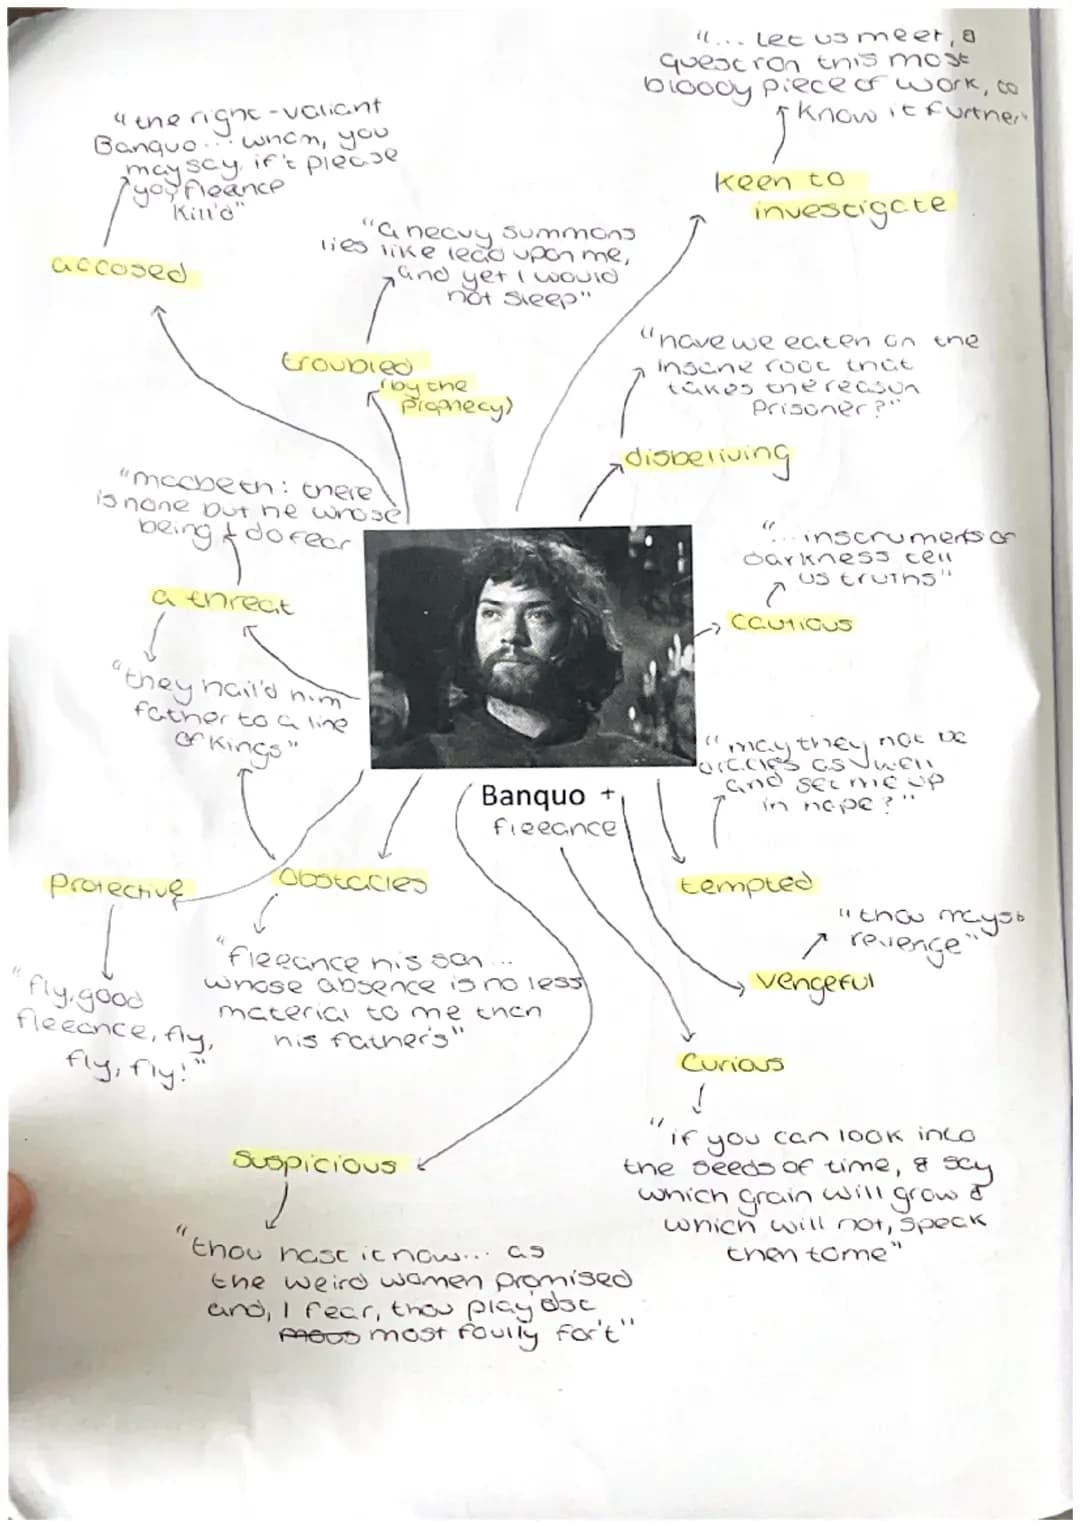 "... Let us meet, &
question this most
bloody piece of work, to
know it further"
keen to
investigate
"the right-valiant
Banquo... whom, you
may say, if't please
you, fleance
Kill'd"
accosed
"a heavy summons
lies like lead upon me,
and yet I would
not sleep"
troubled
(by the
Prophecy)
"have we eaten on the
insane root that
takes the reason
Prisoner?"
disbeliving
"macbeth: there
is none but he whose
being I do fear
a threat
"they hail'd him
father to a line
of Kings"
"... instruments of
darkness tell
us truths"
cautious
"may they not be
as well
and set me up
in hope?"
tempted
Banquo +
fleeance
Protective
"fly, good
fleeance, fly,
fly, fly!"
Obstacles
"fleeance his son...
whose absence is no less
material to me than
his father's"
"thou mayst
revenge"
vengeful
Curious
"if you can look into
the seeds of time, & say
which grain will grow &
which will not, speak
then to me"
Suspicious
"thou hast it now... as
the weird women promised
and, I fear, thou play'dst
most foully for't"